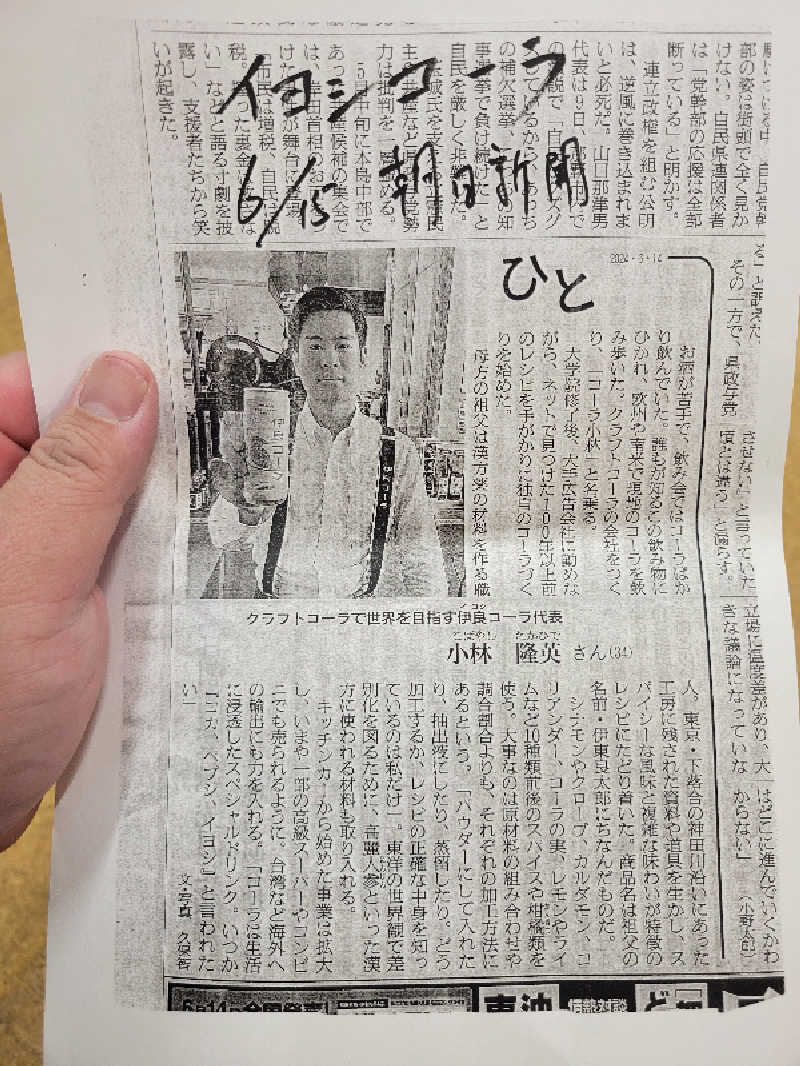 イヨシコーラ
6/15 朝日新聞
ひと
2024・6・14
伊良コーラ
クラフトコーラで世界を目指す伊良コーラ代表
イヨシ
こばやし たかひで
小林 隆英 さん(34)
お酒が苦手で、飲み会ではコーラばか
り飲んでいた。誰もが知るこの飲み物に
ひかれ、欧州や南米で現地のコーラを飲
み歩いた。クラフトコーラの会社をつく
り、「コーラ小林」と名乗る。
大学院修了後、大手広告会社に勤めな
がら、ネットで見つけた100年以上前
のレシピを手がかりに独自のコーラづく
りを始めた。
母方の祖父は漢方薬の材料を作る職
人。東京・下落合の神田川沿いにあった
工房に残された資料や道具を生かし、ス
パイシーな風味と複雑な味わいが特徴の
レシピにたどり着いた。商品名は祖父の
名前・伊東良太郎にちなんだものだ。
シナモンやクローブ、カルダモン、コ
リアンダー、コーラの実、レモンやライ
ムなど10種類前後のスパイスや柑橘類を
使う。大事なのは原材料の組み合わせや
調合割合よりも、それぞれの加工方法に
あるという。「パウダーにして入れた
り、抽出液にしたり、蒸留したり。どう
加工するか、レシピの正確な中身を知っ
ているのは私だけ」。東洋の世界観で差
別化を図るために、高麗人参といった漢
方に使われる材料も取り入れる。
キッチンカーから始めた事業は拡大
し、いまや一部の高級スーパーやコンビ
ニでも売られるように。台湾など海外へ
の輸出にも力を入れる。「コーラは生活
に浸透したスペシャルドリンク。いつか
『コカ、ペプシ、イヨシ』と言われた
い」
文・写真 久保智
部の姿は街頭で全く見か
けない。自民県連関係者
は「党幹部の応援は全部
断っている」と明かす。
連立政権を組む公明
は、逆風に巻き込まれま
いと必死だ。山口那津男
代表は9日、
の補欠選挙
事選挙で負け続けた」と
自民を厳しく
力は批判を
5月中旬に本島中部で
は、岸田首相
「市民は増税、自民は脱
税。
い」などと語る寸劇を披
露し、支援者たちから笑
いが起きた。
その一方で、県政与党
させない」と言っていた
頃とは違う」と漏らす。
立場に温度差があり、大
きな議論になっていな
はどこに進んでいくかわ
からない」
(小野太郎)